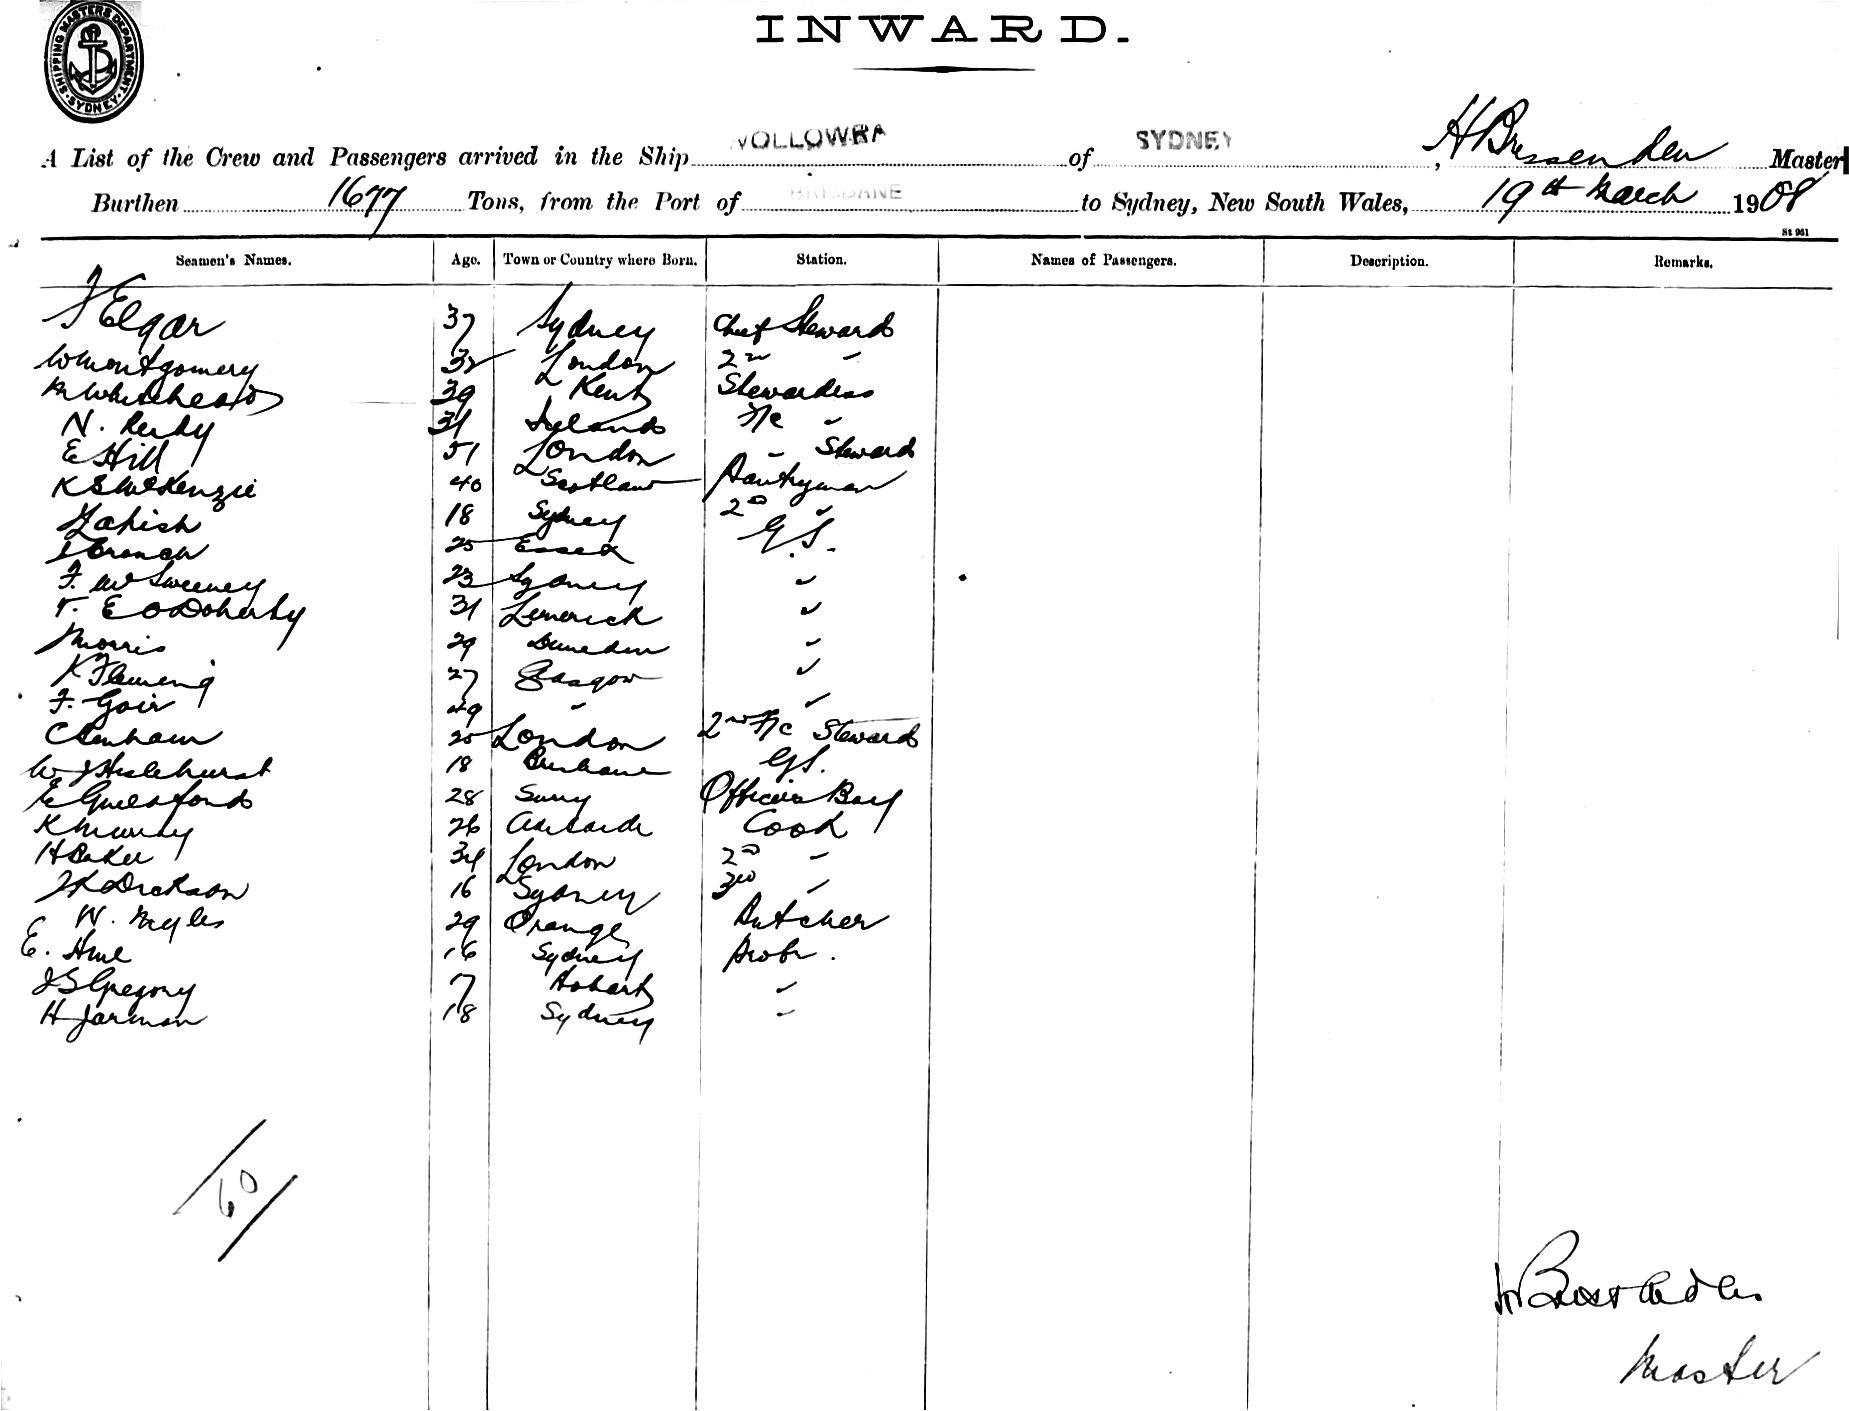 SHIPPING MASTERS DEPARTMENT SYDNEY
INWARD.
A List of the Crew and Passengers arrived in the Ship WOLLOWRA of SYDNEY, H Bressenden Master
Burthen 1677 Tons, from the Port of BRISBANE to Sydney, New South Wales, 19th March 1908
St 961
Seamen's Names. Age. Town or Country where Born. Station. Names of Passengers. Description. Remarks.
F Elgar 37 Sydney Chief Steward
W Montgomery 32 London 2nd "
M Whitehead 39 Kent Stewardess
N. Reidy 31 Ireland F/c "
E Hill 51 London " Steward
K S McKenzie 40 Scotland Pantryman
18 Sydney 2nd "
J Branch 25 Essex G.S.
F. McSweeney 23 Sydney "
T. E O'Doherty 31 Limerick "
J Morris 29 Dunedin "
K Fleming 27 Glasgow "
F. Goir 49 " "
C Denham 25 London 2nd F/c Steward
W J Haslehurst 18 Brisbane G.S.
E Guildford 28 Surry Officers Boy
K Murray 26 Adelaide Cook
H Baker 34 London 2nd "
J K Dickson 16 Sydney 3rd "
W. Myles 29 Orange Butcher
E. Hue 16 Sydney Probr.
J S Gregory 17 Hobart "
H Jarman 18 Sydney "
60
H Bressenden
Master